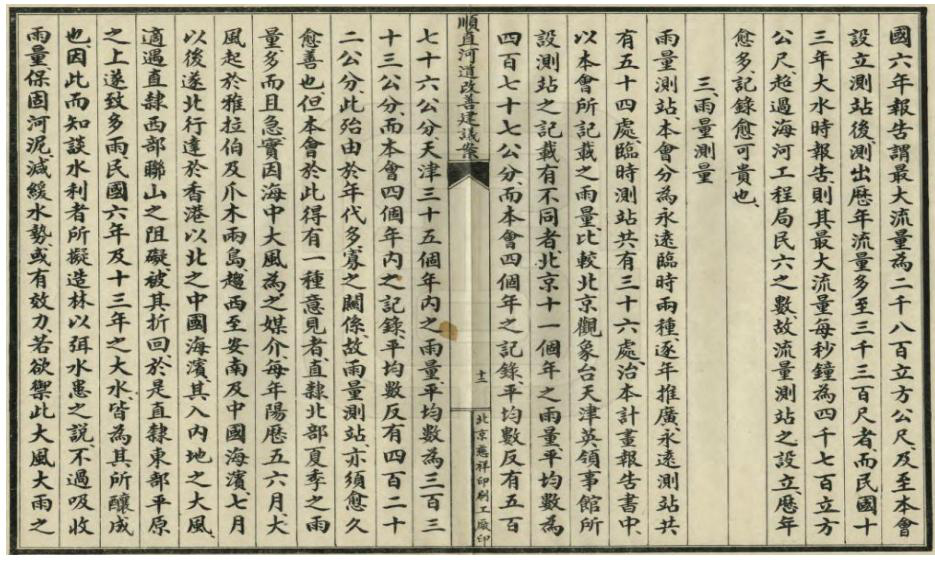 國六年報告謂最大流量為二千八百立方公尺、及至本會
設立測站後、測出歷年流量多至三千三百尺者、而民國十
三年大水時報告則其最大流量每秒鐘為四千七百立方
公尺、超過海河工程局民六之數、故流量測站之設立、歷年
愈多、記錄愈可貴也、
三、雨量測量
雨量測站、本會分為永遠臨時兩種、逐年推廣、永遠測站共
有五十四處、臨時測站共有三十六處、治本計畫報告書中、
以本會所記載之雨量、比較北京觀象台天津英領事館所
設測站之記載有不同者、北京十一個年之雨量、平均數為
四百七十七公分、而本會四個年之記錄、平均數反有五百
順直河道改善建議案
十二
北京慈祥印刷工廠印
七十六公分、天津三十五個年內之雨量、平均數為三百三
十三公分、而本會四個年內之記錄平均數反有四百二十
二公分、此殆由於年代多寡之關係、故雨量測站、亦須愈久
愈善也、但本會於此得有一種意見者、直隸北部夏季之雨
量、多而且急、實因海中大風為之媒介、每年陽歷五六月、大
風起於雅拉伯及爪木兩島、趨西至安南及中國海濱、七月
以後遂北行達於香港以北之中國海濱、其入內地之大風、
適遇直隸西部聯山之阻礙、被其折回、於是直隸東部平原
之上遂致多雨、民國六年及十三年之大水、皆為其所釀成
也、因此而知談水利者所擬造林以弭水患之說、不過吸收
雨量保固河泥、減緩水勢、或有效力、若欲禦此大風大雨之